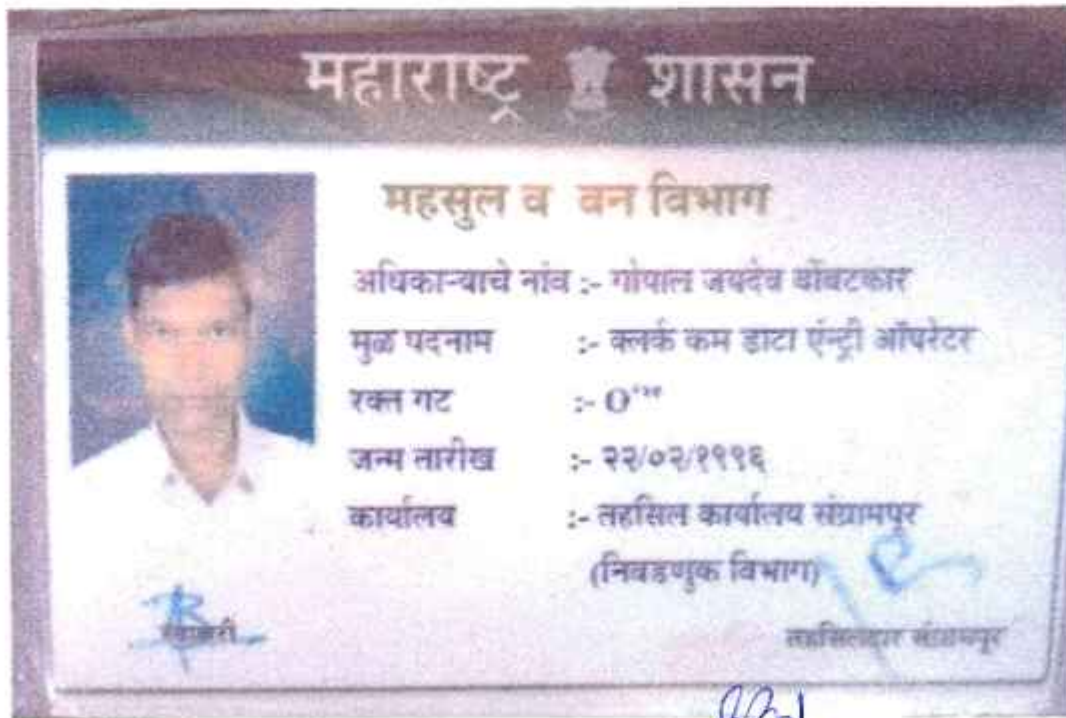 महाराष्ट्र शासन
महसुल व वन विभाग
अधिकाऱ्याचे नांव :- गोपाल जयदेव
मुळ पदनाम :- क्लर्क कम डाटा एंन्ट्री ऑपरेटर
रक्त गट :- O
जन्म तारीख :- २२/०२/१९९६
कार्यालय :- तहसिल कार्यालय संग्रामपूर
(निवडणुक विभाग)
स्वाक्षरी
तहसिलदार संग्रामपूर